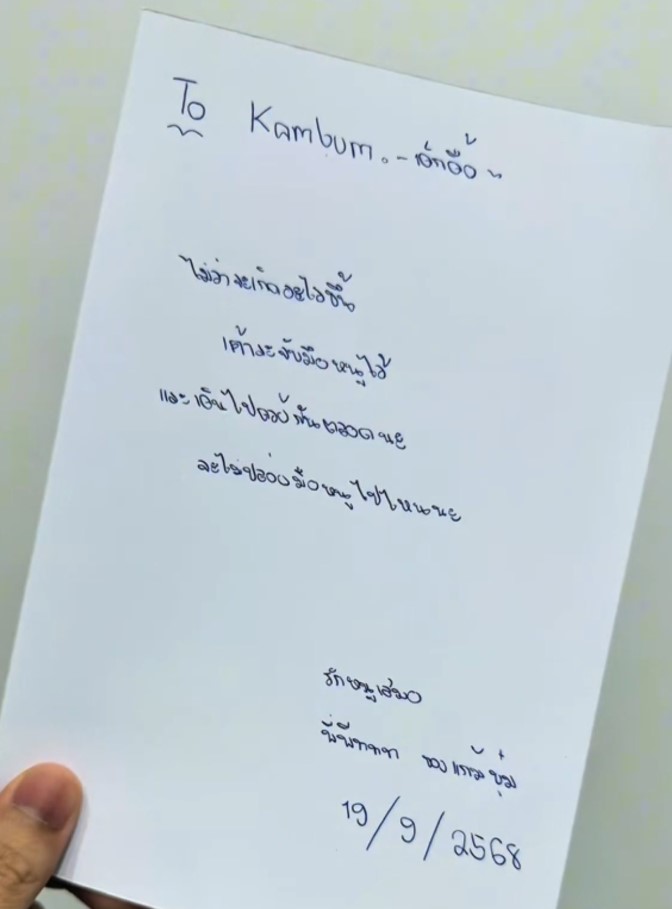 To Kambum. - เอ้กอื้อ ~
ไม่ว่าจะเกิดอะไรขึ้น
เค้าจะจับมือหนูไว้
และเดินไปด้วยกันตลอดนะ
จะไม่ปล่อยมือหนูไปไหนนะ
รักหนูเสมอ
ของแก้มขุ่ม
19/9/2568